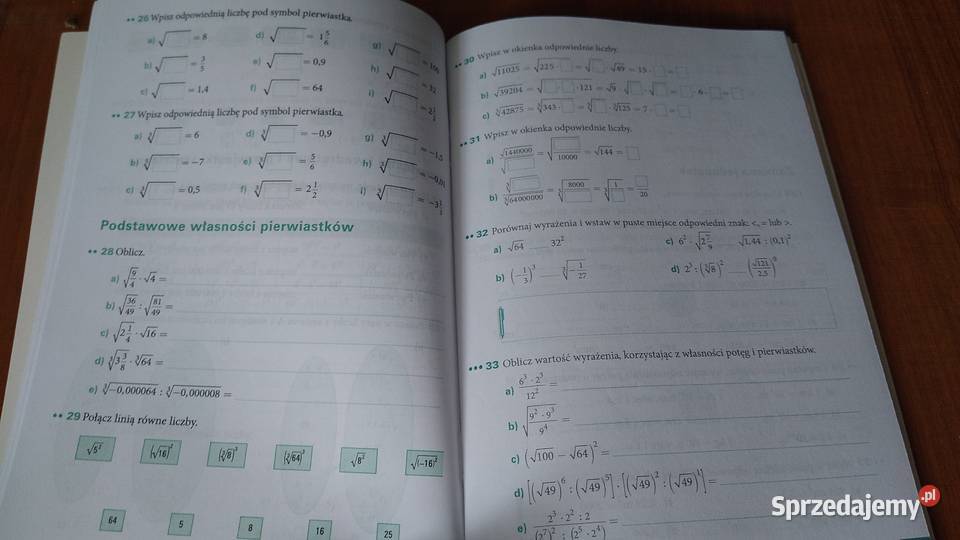 •• 26 Wpisz odpowiednią liczbę pod symbol pierwiastka.
a) √□ = 8 d) √□ = 1 5/6 g) √□ = 100
b) √□ = 3/5 e) √□ = 0,9 h) √□ = 12
c) √□ = 1,4 f) √□ = 64 i) √□
•• 27 Wpisz odpowiednią liczbę pod symbol pierwiastka.
a) ∛□ = 6 d) ∛□ = −0,9 g) ∛□ = −1,5
b) ∛□ = −7 e) ∛□ = 5/6 h) ∛□ = −0,01
c) ∛□ = 0,5 f) ∛□ = 2 1/2 i) ∛□
Podstawowe własności pierwiastków
•• 28 Oblicz.
a) √(9/4) · √4 =
b) √(36/49) : √(81/49) =
c) √(2 1/4) · √16 =
d) ∛(3 3/8) · ∛64 =
e) ∛−0,000064 : ∛−0,000008 =
•• 29 Połącz linią równe liczby.
√5² (√16)² (∛8)³ (∛64)³ √8² √(−16)²
64 5 8 16 25
•• 30 Wpisz w okienka odpowiednie liczby.
a) √11025 = √(225 · □) = √□ · √49 = 15 · □ = □
b) √39204 = √(□ · □ · 121) = √9 · √□ · √□ = □ · 6 · □ = □
c) ∛42875 = ∛(343 · □) = ∛□ · ∛125 = 7 · □ = □
•• 31 Wpisz w okienka odpowiednie liczby.
a) √1440000/√□ = √(□/10000) = √144 = □
b) ∛□/∛64000000 = ∛(8000/□) = ∛(1/□) = □/20
•• 32 Porównaj wyrażenia i wstaw w puste miejsce odpowiedni znak: <, = lub >.
a) √64 ..... 32² c) 6² · √(2 7/9) ..... √1,44 : (0,1)²
b) (−1/3)³ ..... ∛(−1/27) d) 2³ : (∛8)² ..... (√121/2,5)⁰
••• 33 Oblicz wartość wyrażenia, korzystając z własności potęg i pierwiastków.
a) (6³ · 2³)/12² =
b) √((9² · 9³)/9⁴) =
c) (√100 − √64)² =
d) [(√49)⁶ : (√49)⁵] · [(√49)² : (√49)¹] =
e) (2³ · 2² : 2)/((2⁷)² : (2⁵ · 2⁴)) =
Sprzedajemy.pl